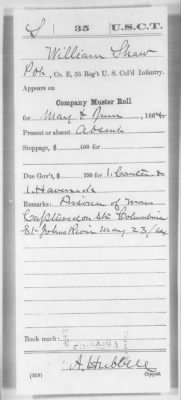 S | 35 | U.S.C.T.
William Shaw
Pvt, Co. E, 35 Reg't U. S. Col'd Infantry.
Appears on
Company Muster Roll
for May & June, 1864.
Present or absent Absent
Stoppage, $ 100 for
Due Gov't, $ 100 for 1. Canteen &
1. Haversack
Remarks: Prisoner of War
Captured on Str Columbine
St Johns River May 23/64
Book mark:
A. Hubbell
(358) Copyist.